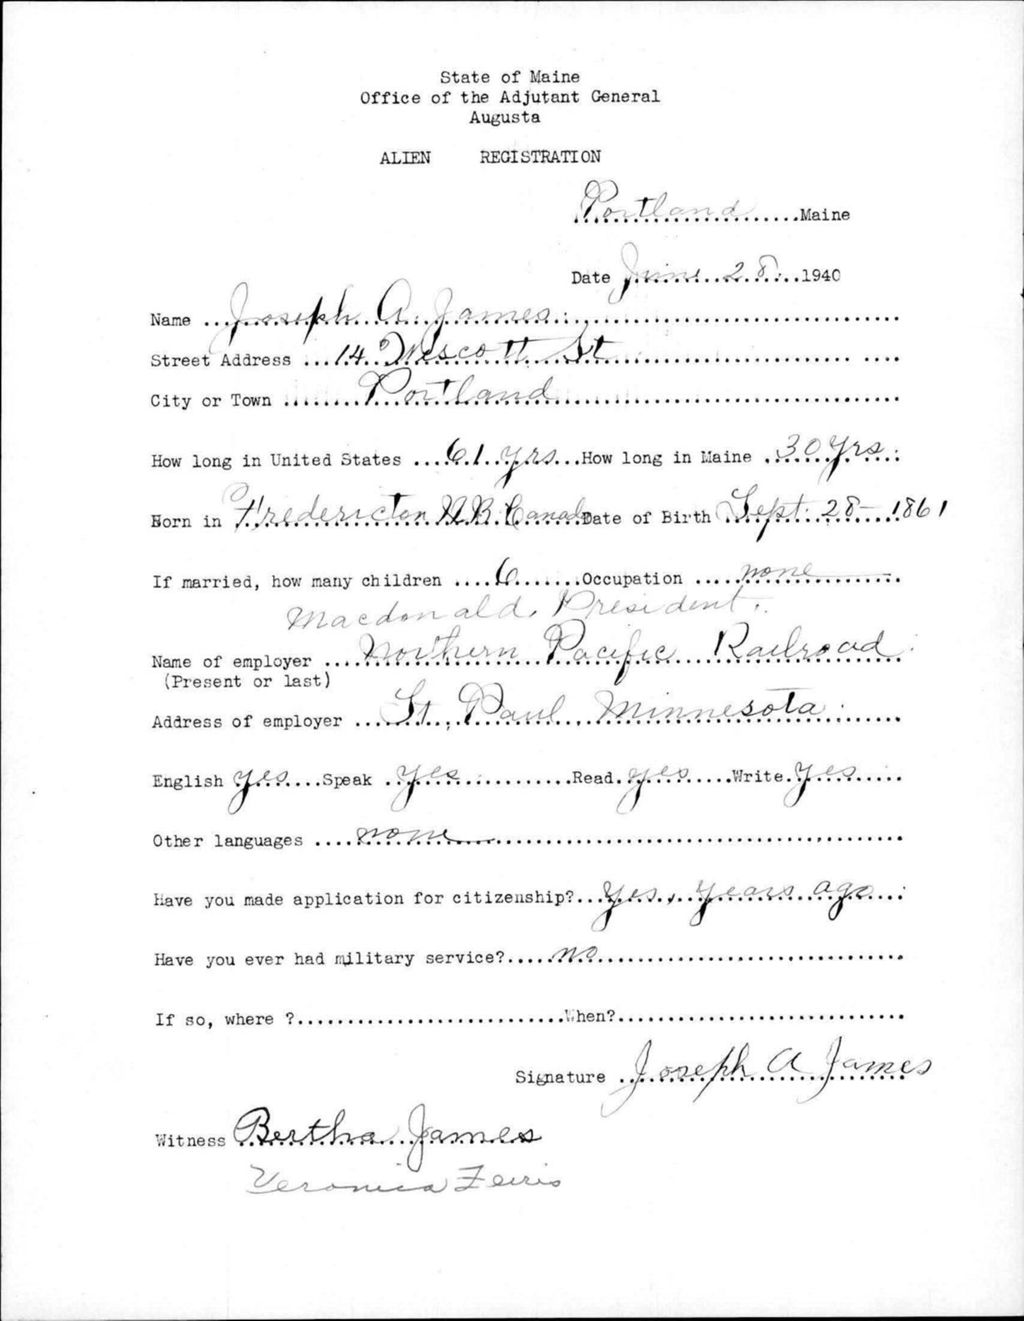 State of Maine
Office of the Adjutant General
Augusta
ALIEN REGISTRATION
Portland Maine
Date June 28 1940
Name Joseph A. James
Street Address 14 Wescott St
City or Town Portland
How long in United States 61 yrs How long in Maine 30 yrs
Born in Fredericton N.B. Canada Date of Birth Sept. 28 - 1861
If married, how many children 6 Occupation none
Macdonald, President.
Name of employer Northern Pacific Railroad
(Present or last)
Address of employer St. Paul, Minnesota
English yes Speak yes Read yes Write yes
Other languages none
Have you made application for citizenship? Yes, years ago
Have you ever had military service? no
If so, where ? When?
Signature Joseph A James
Witness Bertha James
Veronica